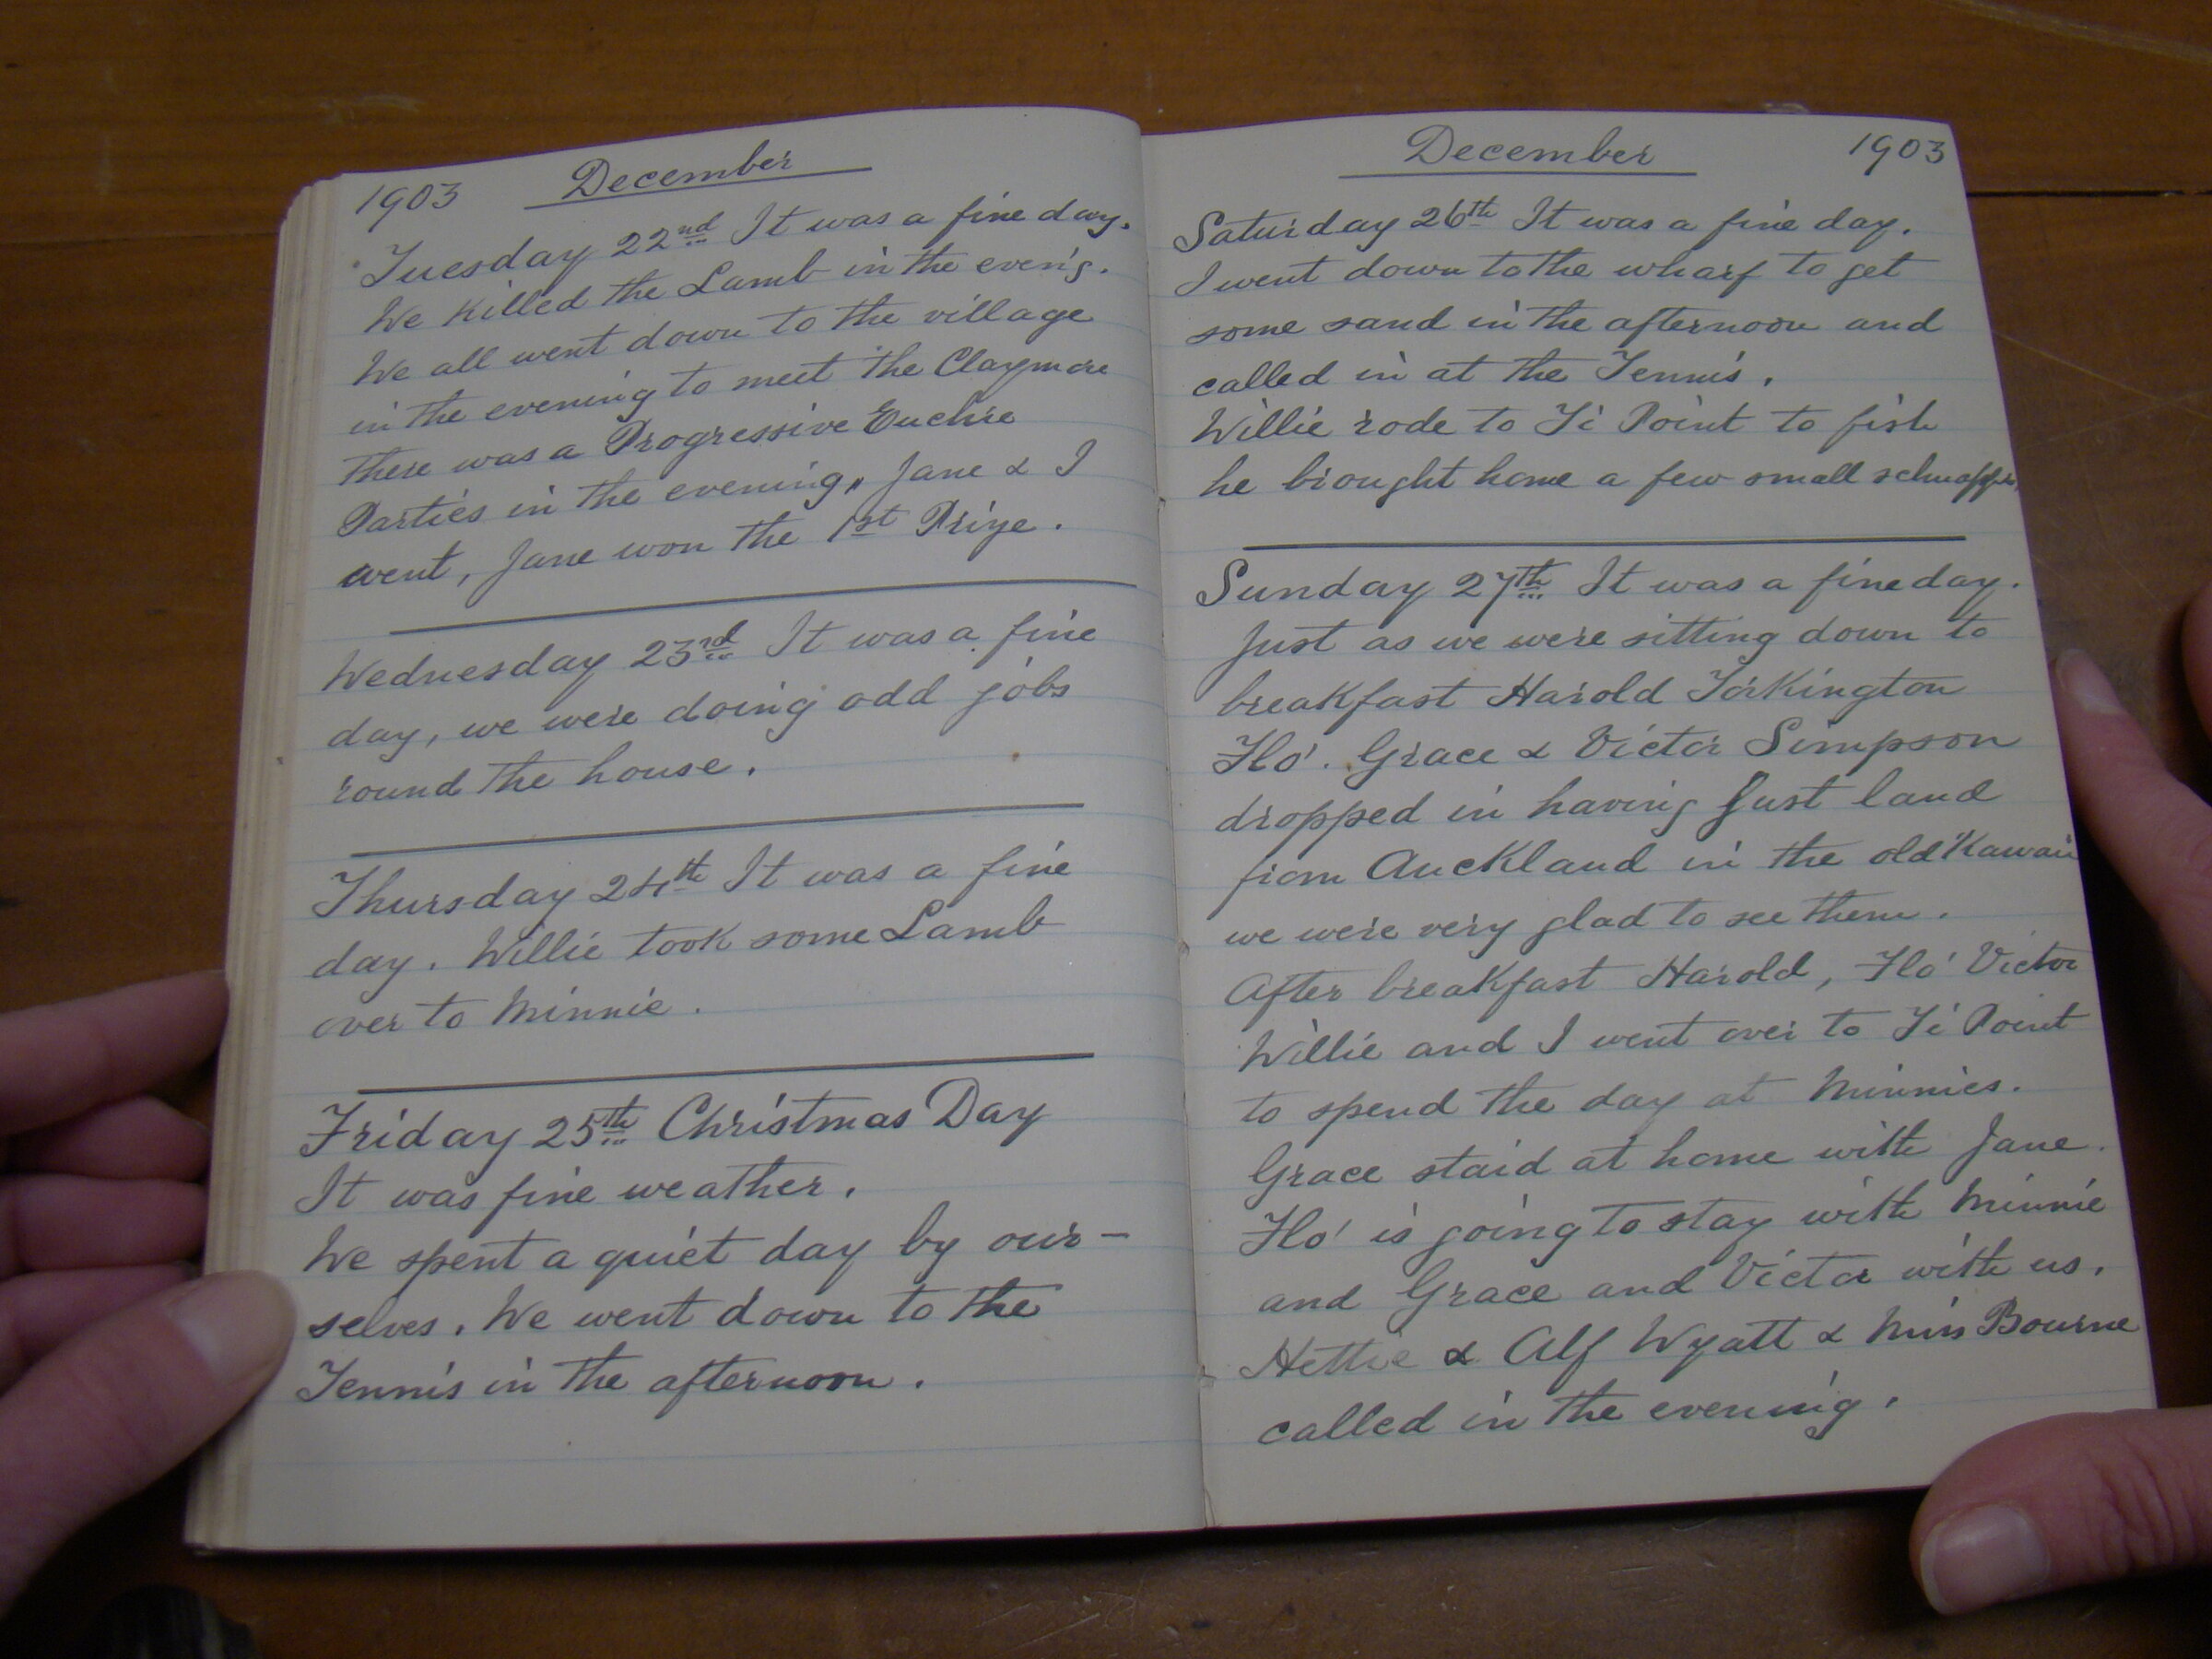 1903 December
Tuesday 22nd It was a fine day.
We killed the Lamb in the even'g.
We all went down to the village
in the evening to meet the Claymore
there was a Progressive Euchre
Parties in the evening,, Jane & I
went, Jane won the 1st Prize.
Wednesday 23rd It was a fine
day, we were doing odd jobs
round the house.
Thursday 24th It was a fine
day. Willie took some Lamb
over to Minnie.
Friday 25th Christmas Day
It was fine weather.
We spent a quiet day by our-
selves. We went down to the
Tennis in the afternoon.
December 1903
Saturday 26th It was a fine day.
I went down to the wharf to get
some sand in the afternoon and
called in at the Tennis.
Willie rode to Ti Point to fish
he brought home a few small schnapper
Sunday 27th It was a fine day.
Just as we were sitting down to
breakfast Harold Torkington
Flo'. Grace & Victor Simpson
dropped in having just land
from Auckland in the old "Kawau
we were very glad to see them.
After breakfast Harold, Flo' Victor
Willie and I went over to Ti Point
to spend the day at Minnies.
Grace staid at home with Jane.
Flo' is going to stay with Minnie
and Grace and Victor with us.
Hettie & Alf Wyatt & Miss Bourne
called in the evening.